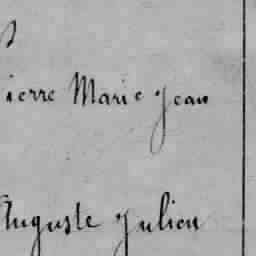 ierre Marie Jean
Auguste Julien